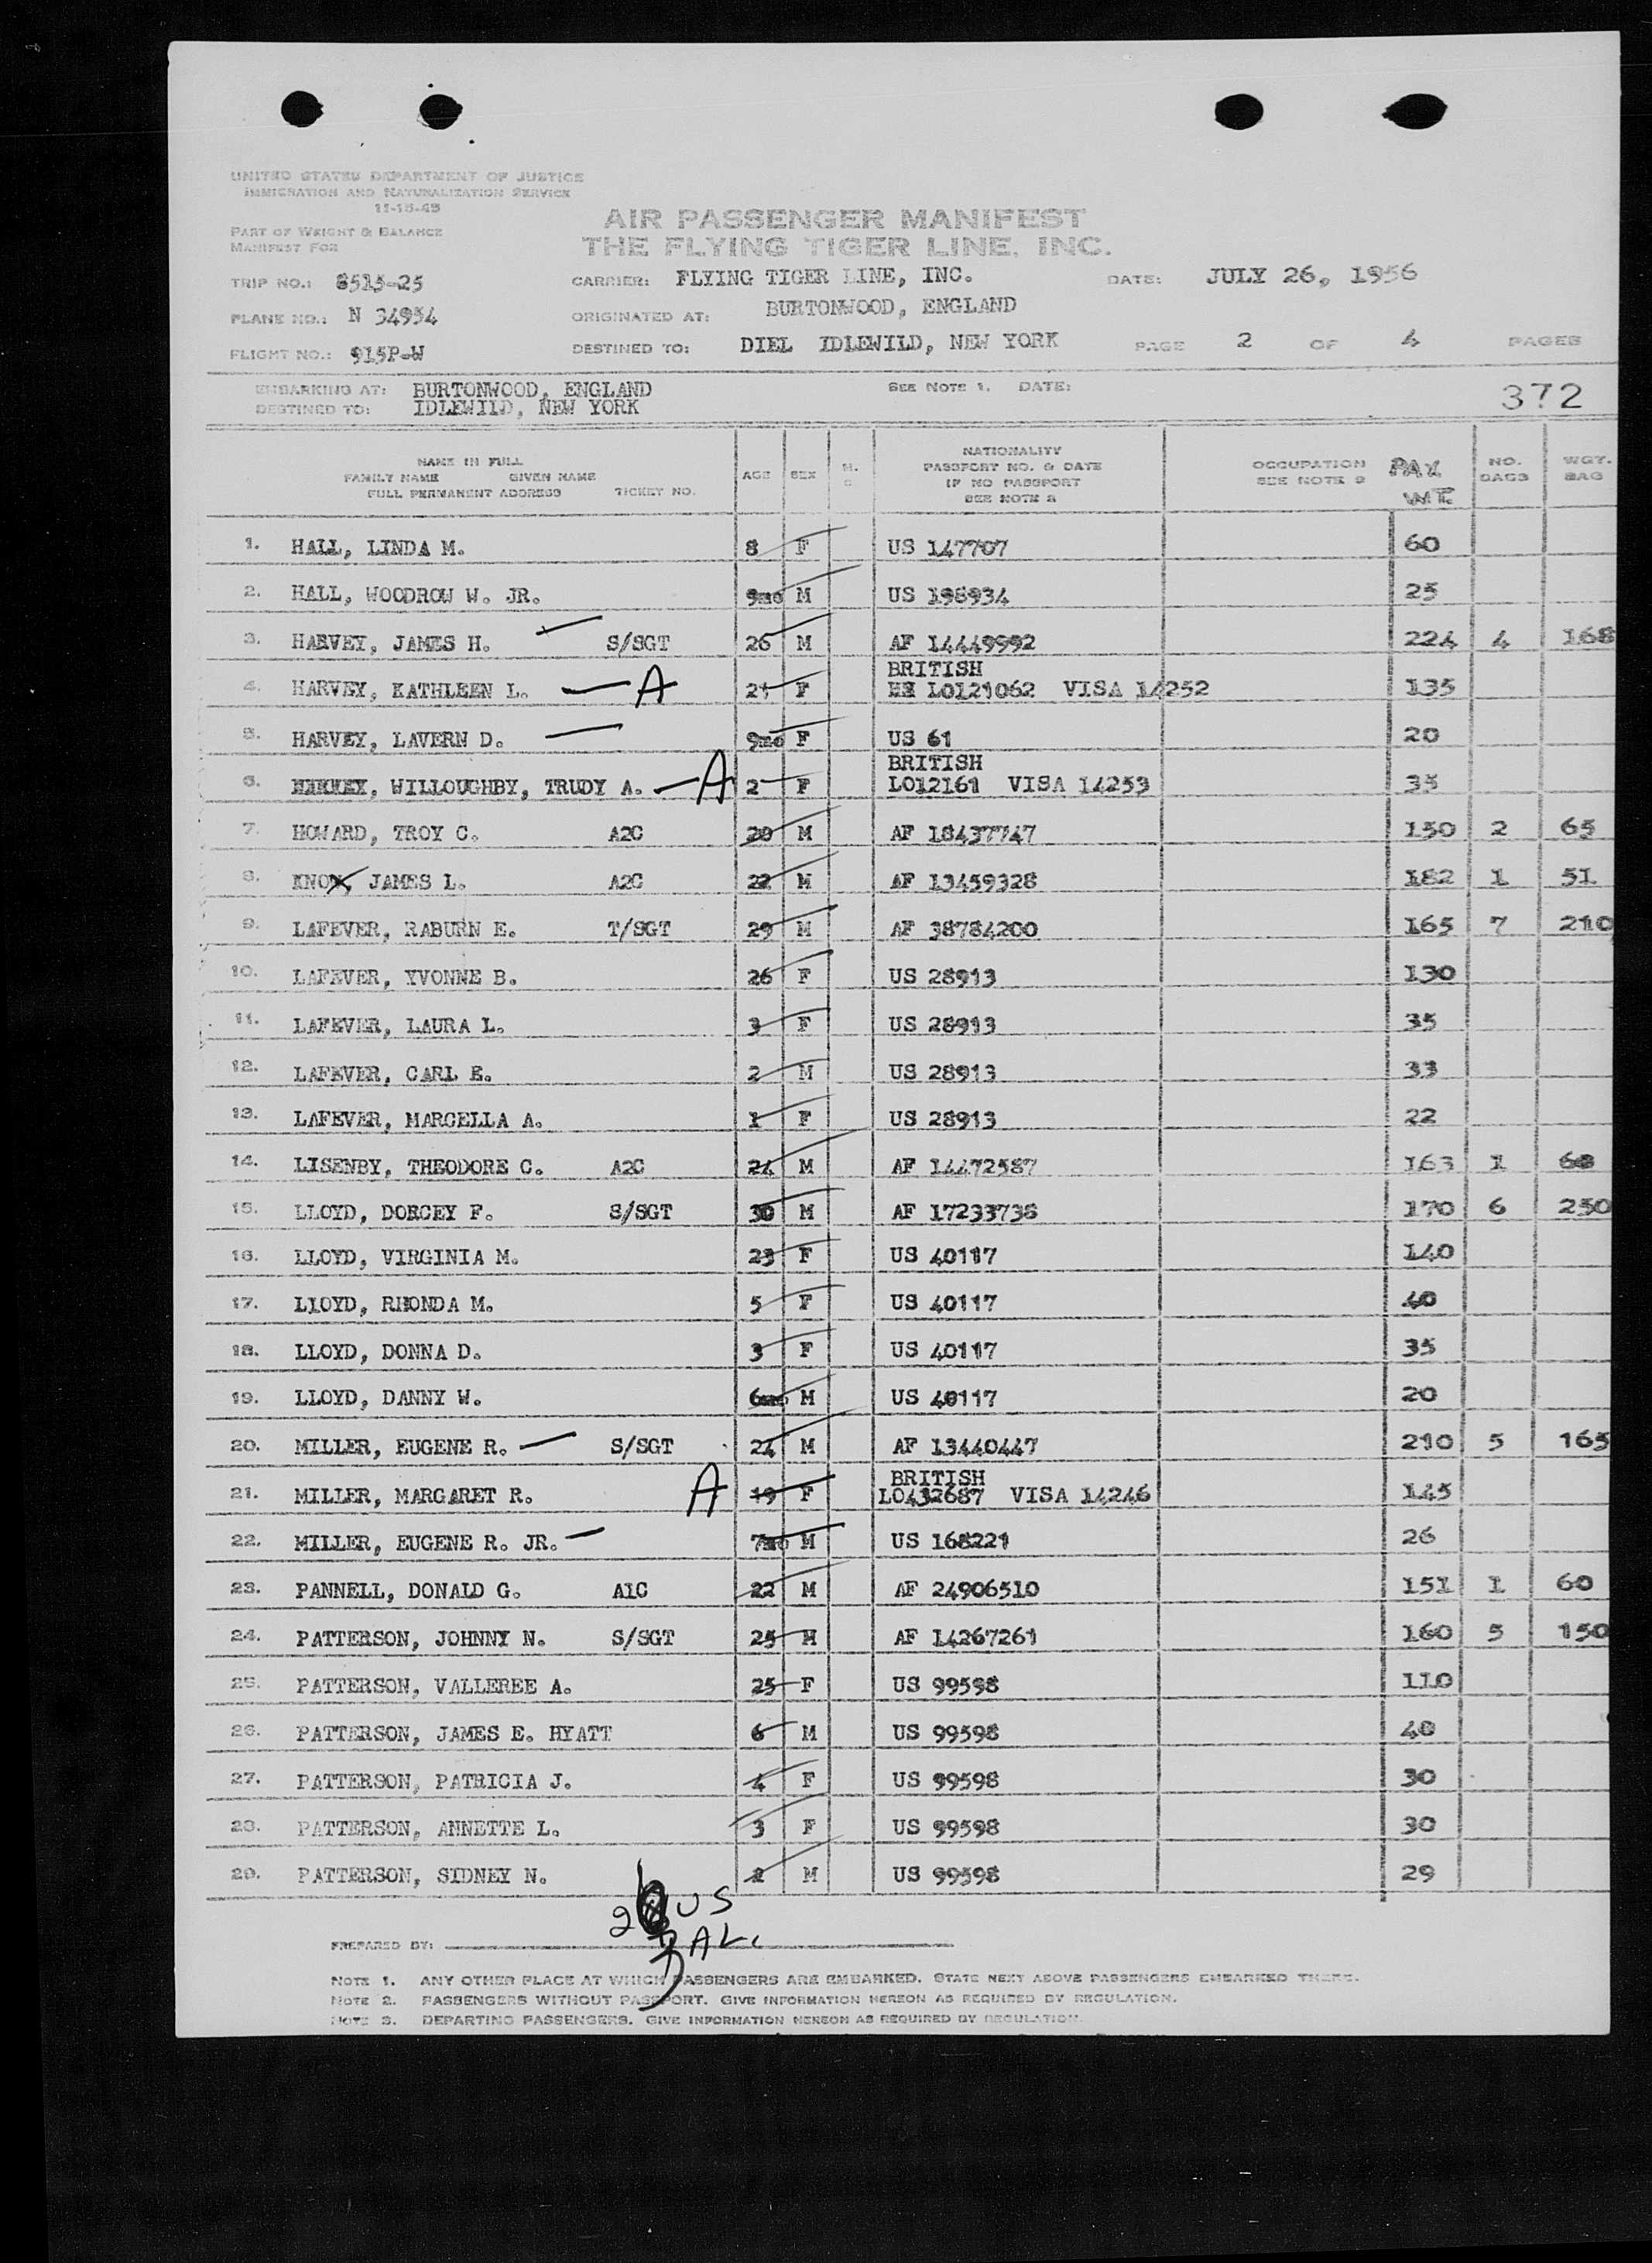 UNITED STATES DEPARTMENT OF JUSTICE
IMMIGRATION AND NATURALIZATION SERVICE
11-15-45
AIR PASSENGER MANIFEST
PART OF WEIGHT & BALANCE
MANIFEST FOR
THE FLYING TIGER LINE, INC.
TRIP NO.: 8515-25 CARRIER: FLYING TIGER LINE, INC. DATE: JULY 26, 1956
PLANE NO.: N 34954 ORIGINATED AT: BURTONWOOD, ENGLAND
FLIGHT NO.: 915P-W DESTINED TO: DIEL IDLEWILD, NEW YORK PAGE 2 OF 4 PAGES
EMBARKING AT: BURTONWOOD, ENGLAND SEE NOTE 1. DATE: 372
DESTINED TO: IDLEWILD, NEW YORK
NAME IN FULL
FAMILY NAME GIVEN NAME
FULL PERMANENT ADDRESS TICKET NO.
AGE SEX
NATIONALITY
PASSPORT NO. & DATE
IF NO PASSPORT
SEE NOTE 2
OCCUPATION
SEE NOTE 2
PAX
WT.
NO.
BAGS
WGT.
BAG
1. HALL, LINDA M. 8 F US 147707 60
2. HALL, WOODROW W. JR. 9mo M US 198934 25
3. HARVEY, JAMES H. S/SGT 26 M AF 14449992 224 4 168
BRITISH
4. HARVEY, KATHLEEN L. — A 21 F LO121062 VISA 14252 135
5. HARVEY, LAVERN D. 9mo F US 61 20
BRITISH
6. WILLOUGHBY, TRUDY A. — A 2 F LO12161 VISA 14253 35
7. HOWARD, TROY C. A2C 20 M AF 18437747 150 2 65
8. KNOX, JAMES L. A2C 22 M AF 13459328 182 1 51
9. LAFEVER, RABURN E. T/SGT 29 M AF 38784200 165 7 210
10. LAFEVER, YVONNE B. 26 F US 28913 130
11. LAFEVER, LAURA L. 3 F US 28913 35
12. LAFEVER, CARL E. 2 M US 28913 33
13. LAFEVER, MARCELLA A. 1 F US 28913 22
14. LISENBY, THEODORE C. A2C 24 M AF 14472587 163 1 68
15. LLOYD, DORCEY F. S/SGT 30 M AF 17233738 170 6 250
16. LLOYD, VIRGINIA M. 23 F US 40117 140
17. LLOYD, RHONDA M. 5 F US 40117 40
18. LLOYD, DONNA D. 3 F US 40117 35
19. LLOYD, DANNY W. 6mo M US 40117 20
20. MILLER, EUGENE R. — S/SGT 24 M AF 13440447 210 5 165
BRITISH
21. MILLER, MARGARET R. A 19 F LO432687 VISA 14246 145
22. MILLER, EUGENE R. JR. — 7mo M US 168221 26
23. PANNELL, DONALD G. A1C 22 M AF 24906510 151 1 60
24. PATTERSON, JOHNNY N. S/SGT 25 M AF 14267261 160 5 150
25. PATTERSON, VALLEREE A. 25 F US 99598 110
26. PATTERSON, JAMES E. HYATT 6 M US 99598 40
27. PATTERSON, PATRICIA J. 4 F US 99598 30
28. PATTERSON, ANNETTE L. 3 F US 99598 30
29. PATTERSON, SIDNEY N. 2 M US 99598 29
US
PREPARED BY: 3 AL.
NOTE 1. ANY OTHER PLACE AT WHICH PASSENGERS ARE EMBARKED. STATE NEXT ABOVE PASSENGERS EMBARKED THERE.
NOTE 2. PASSENGERS WITHOUT PASSPORT. GIVE INFORMATION HEREON AS REQUIRED BY REGULATION.
NOTE 3. DEPARTING PASSENGERS. GIVE INFORMATION HEREON AS REQUIRED BY REGULATION.